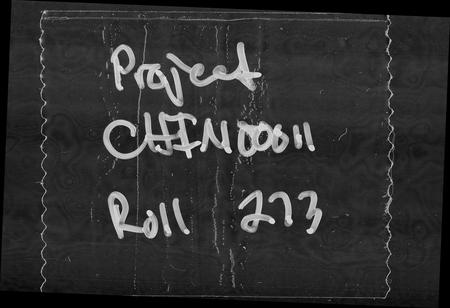 Project
CHIN00011
Roll 273